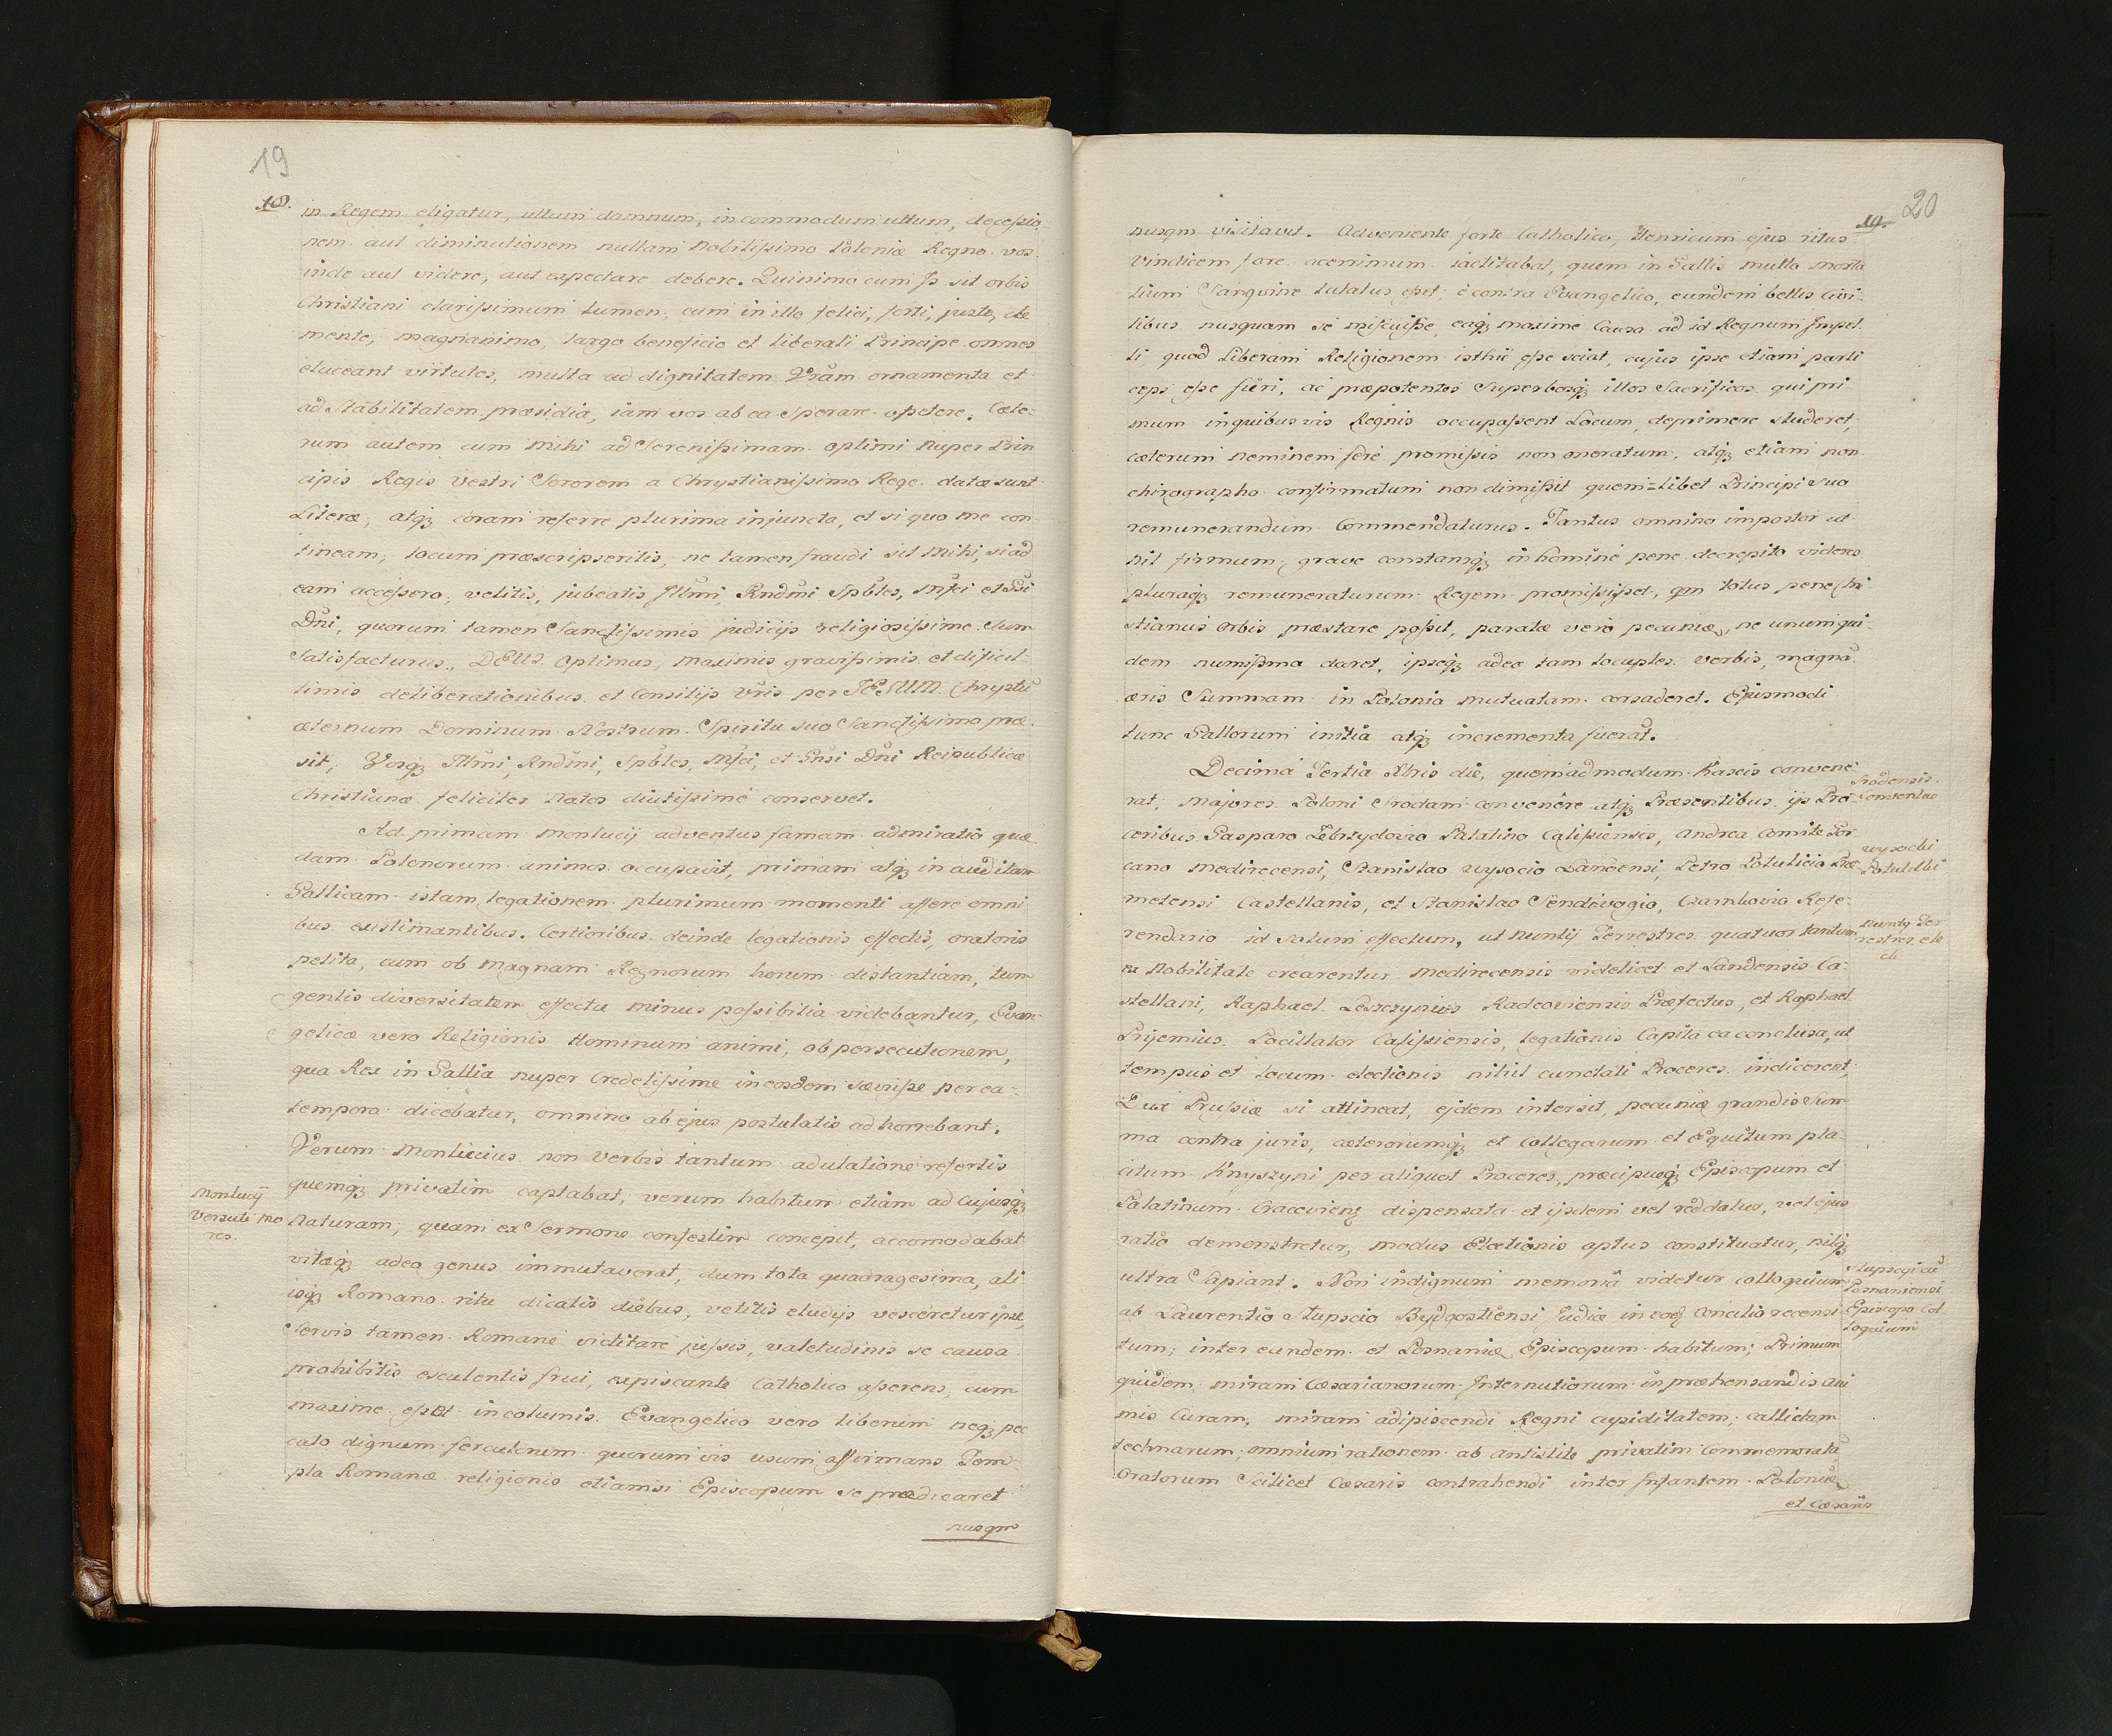 19
18.
in Regem eligatur, ullum damnum, incommodum ullum, decessio
nem aut diminutionem nullam Nobilissimo Poloniæ Regno vos
inde aut videre, aut expectare debere. Quinimo cum is sit orbis
Christiani clarissimum Lumen, cum in illo felici, forti, justo, cle
mente, magnanimo, largo beneficio et liberali Principe omnes
eluceant virtutes, multa ad dignitatem Vram ornamenta et
ad Stabilitatem præsidia, iam vos ab ea sperare opetere. Cæte-
rum autem cum mihi ad Serenissimam optimi nuper Prin
cipis Regis Vestri Sororem a Chrystianissimo Rege datæ sunt
Literæ, atq; coram referre plurima injuncta, et si quo me con
tineam, locum præscripseritis, ne tamen fraudi sit mihi, si ad
eam accessero, velitis, jubeatis Illmi, Rndmi Spbles, Mfci et Gsi
Dni, quorum tamen Sanctissimis judicijs religiosissime Sum
Satisfacturus. DEUS Optimus, Maximis gravissimis et dificil-
limis deliberationibus et Consilijs vris per IESUM Chrystu
æternum Dominum Nostrum Spiritu suo Sanctissimo præ
sit, Vosq; Illmi, Rndmi, Spbles, Mfci, et Gnsi Dni Reipublicæ
Christianæ feliciter Natos diutissimè conservet.
Ad primam Monlucij adventus famam admiratio quæ
dam Polonorum animos occupavit, primam atq; inauditam
Gallicam istam legationem plurimum momenti afferre omni
bus existimantibus. Certioribus deinde legationis effectis, oratoris
petita, cum ob magnam Regnorum horum distantiam, tum
gentis diversitatem effectu minus possibilia videbantur, Evan-
gelicæ vero Religionis Hominum animi, ob persecutionem,
qua Rex in Gallia nuper Credelissime in eosdem sævisse per ea
tempora dicebatur, omnino ab ejus postulatis adhorrebant.
Verum Monlucius non Verbis tantum adulatione refertis
quemq; privatim captabat, verum habitum etiam ad cujusq;
Monlucij
Versuti mo
res.
Naturam, quam ex Sermone confestim concepit, accomodabat
vitæq; adeo genus immutaverat, dum tota quadragesima, ali
isq; Romano ritu dicatis diebus, vetitis eludijs vesceretur ipse,
Servis tamen Romane victitare jussis, valetudinis se causa
prohibitis esculentis frui, expiscante Catholico asserens, cum
maxime esset incolumis. Evangelico vero liberum neq; pec
cato dignum ferculorum quorumvis usum affirmans Tem
pla Romanæ religionis etiamsi Episcopum se prædicaret
nusqm
20
19.
nusqm visitavit. Adveniente forte Catholico, Henricum ejus ritus
Vindicem fore acerrimum iactitabat, quem in Gallis multo morta
lium Sangvine tutatus esset, è contra Evangelico, eundem bellis Civi-
libus nusquam se miscuisse, eaq; maxime Causa ad id Regnum Impel
li quod Liberam Religionem isthic esse sciat, cujus ipse etiam parti
ceps esse fueri, ac præpotentes Superbosq; illos Sacrificos qui pri
mum in quibusvis Regnis occupassent Locum, deprimere studeret,
cæterum neminem ferè promissis non oneratum, atq; etiam non
chirographo confirmatum non dimissit quem-libet Principi Suo
remunerandum Commendaturus. Tantus omnino impostor ut
nil firmum, grave constansq; in homine pene decrepito videres
pluraq; remuneraturum Regem promisisset, qm totus pene Chri
stianus Orbis præstare possit, paratæ vero pecuniæ, ne unum qui-
dem numisma daret, ipseq; adeo tam locuples verbis, magna
æris Summam in Polonia mutuatam corraderet. Ejusmodi
tunc Gallorum initia atq; incrementa fuerat.
Decima Tertia Xbris die, quemadmodum Kaseis convene-
Srodensis
Conventus
rat, Majores Poloni Srodam convenêre atq; Præsentibus ijs Pro-
ceribus Gasparo Zebrzydovio Palatino Calissiensis, Andrea Comite Gor
wysocki
Potulicki
cano Medirecensi, Stanislao Wysocio Landensi, Petro Potulicio Præ-
metensi Castellanis, et Stanislao Sendivogio, Czarnkovio Refe-
rendario id solum effectum, ut Nuntij Terrestres quatuor tantum
Nuntij Ter
restres ele
cti
ex Nobilitate crearentur Medirecensis videlicet et Landensis Ca-
stellani, Raphael Leszczynius Radeoviensis Præfectus, et Raphael
Prijemius Pocillator Calissiensis, legationis Capita ea conclusa, ut
tempus et locum electionis nihil cunctati Proceres indicerent,
Dux Prussiæ si attineat, ejdem intersit, pecuniæ grandis Sum
ma contra juris, cæterorumq; et Collegarum et Equitum pla-
citum Knyszyni per aliquot Proceres, præcipueq; Episcopum et
Palatinum Cracovieng dispensata et ijsdem vel reddatur, vel ejus
ratio demonstretur, modus Electionis aptus constituatur, nilq;
ultra Sapiant. Non indignum memoriâ videtur colloquium
Slupscij cu
Posnaniensi
Episcopo Col
loquium
ab Laurentio Slupscio Bydgostiensi Judice in eod concilio recensi
tum, inter eundem et Posnaniæ Episcopum habitum; Primum
quidem miram Cæsarianorum Internutiorum in præhensandis ani
mis Curam, miram adipiscendi Regni cupiditatem, callidam
technarum, omnium rationem ab Antistite privatim Commemorata,
Oratorum Scilicet Cæsaris contrahendi inter Infantem Poloniæ
et Cæsaris